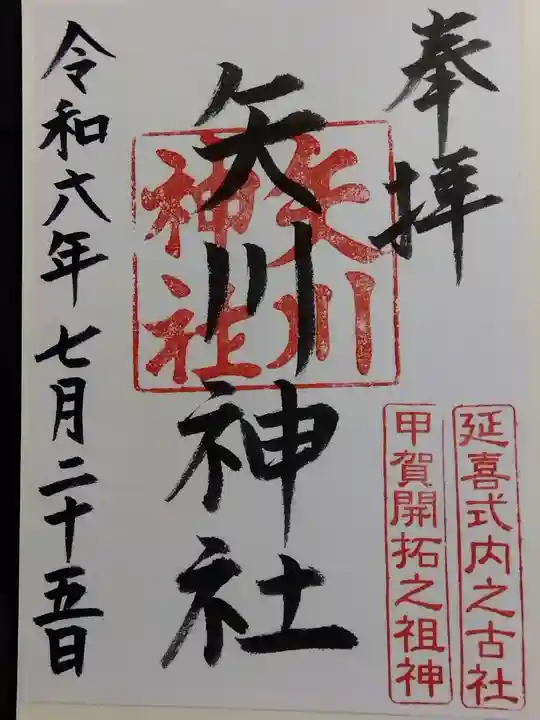 奉拝
延喜式内之古社
甲賀開拓之祖神
矢川神社
矢川
神社
令和六年七月二十五日